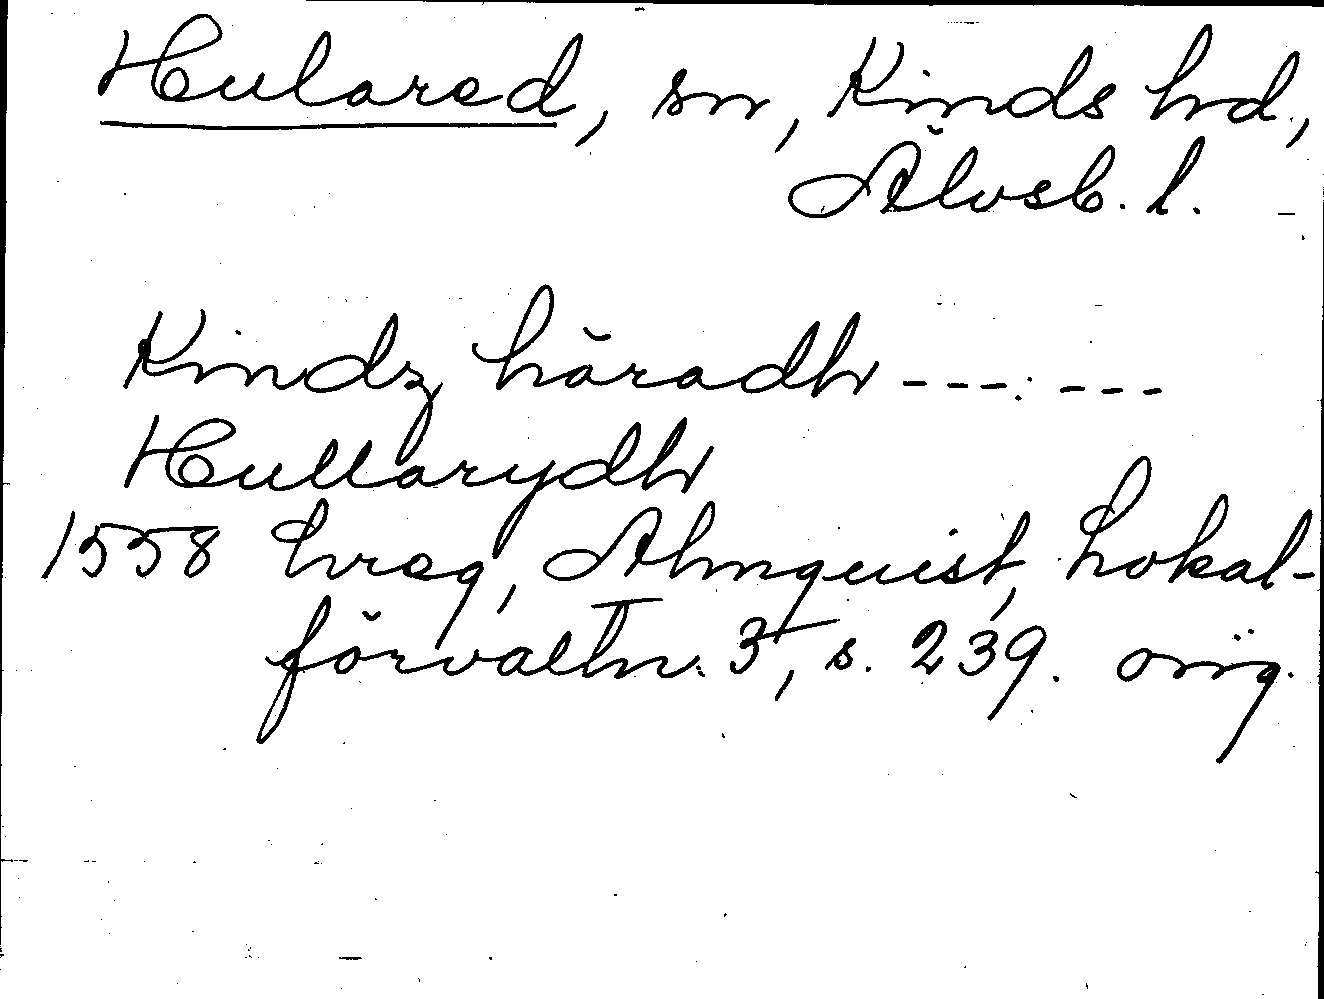 Hulared, sn, Kinds hd.,
Älvsb. l.
Kindz häradh --- ---
Hullarydh
1558 hreg, Almquist, Lokal-
förvaltn. 3, s. 239. orig.